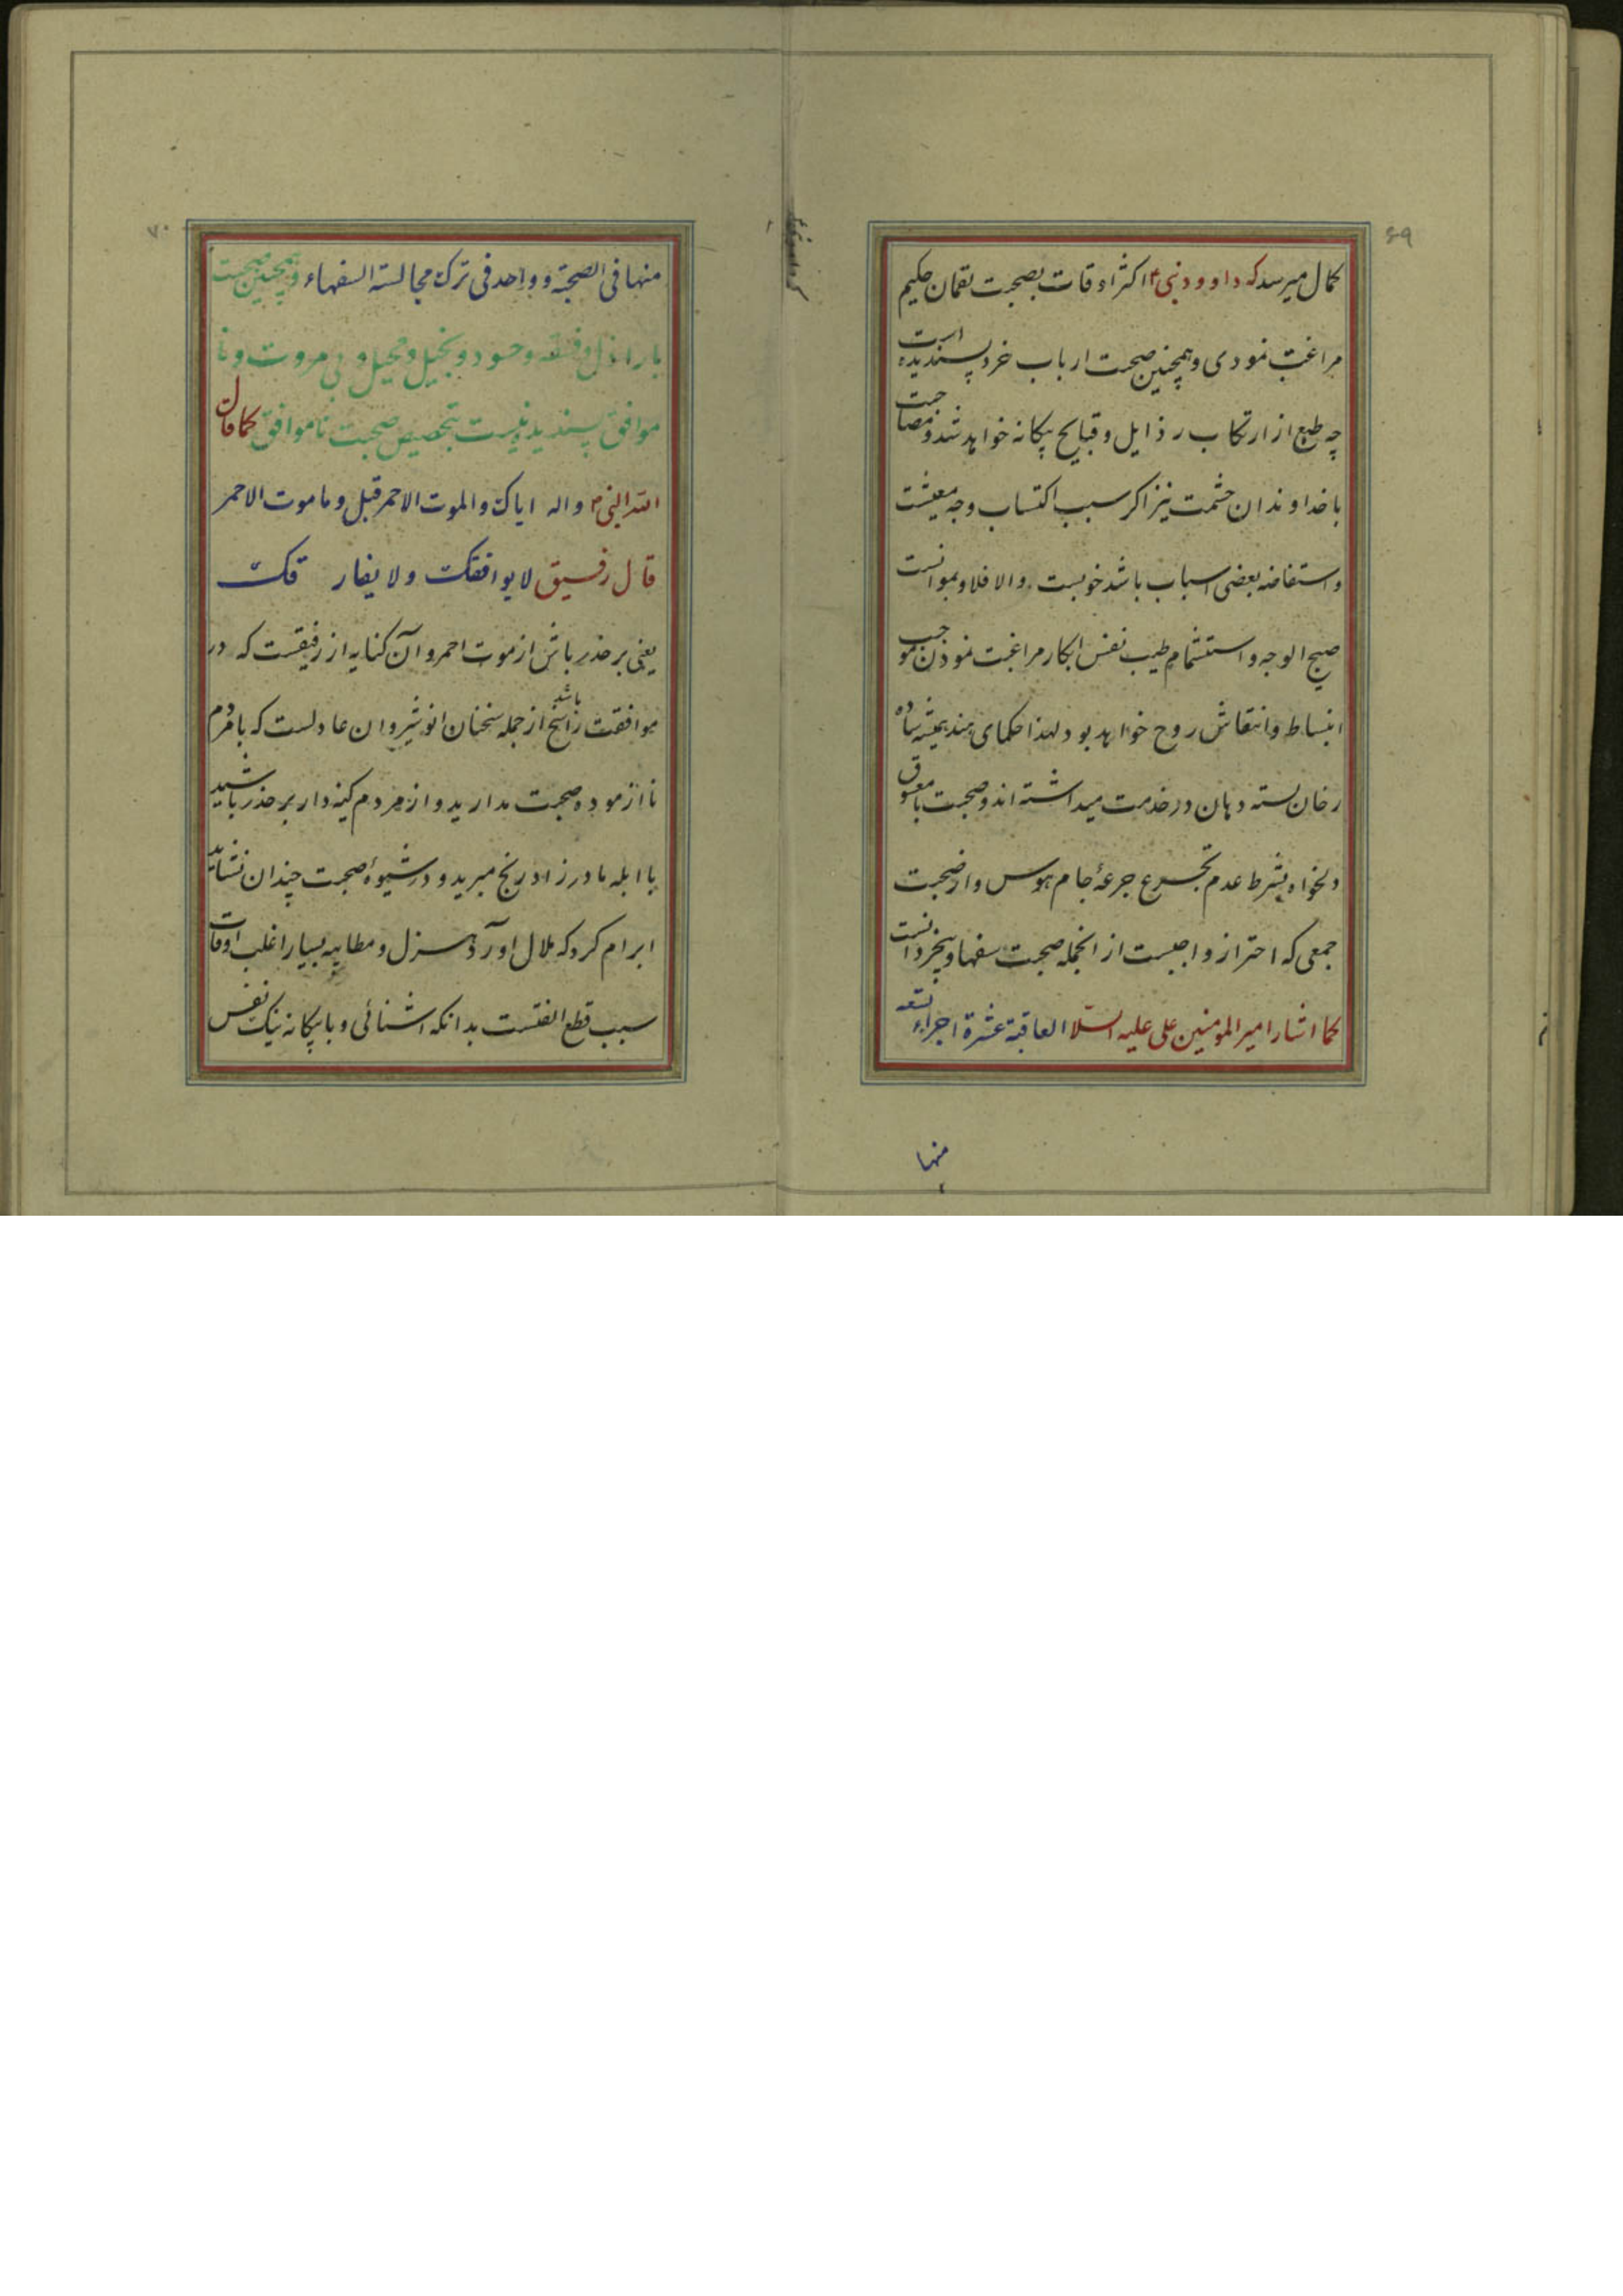 ۶۹
کمال میرسد که داوود نبی ۴ اکثر اوقات بصحبت لقمان حکیم
مراغبت نمودی و همچنین صحبت ارباب خرد پسندیده است
چه طبع از ارتکاب رذایل و قبایح بیکانه خواهد شد و مصاحبت
با خداوندان حشمت نیز اکر سبب اکتساب وجه معیشت
و استفاضه بعضی اسباب باشد خوبست والا فلا و بموانست
صبیح الوجه و استشمام طیب نفس ابکار مراغبت نمودن موجب
انبساط و انتقاش روح خواهد بود لهذا حکمای هند همیشه ساده
رخان بسته دهان در خدمت میداشته اند و صحبت با معشوق
دلخواه بشرط عدم تجرع جرعهٔ جام هوس و از صحبت
جمعی که احتراز واجبست از انجمله صحبت سفها و بیخردانست
کما اشار امیر المومنین علی علیه السلا العاقبة عشرة اجزاء تسعه
منها
۷۰
منها فی الصحبة و واحد فی ترک مجالسته السفهاء و همچنین صحبت
با راذل و فسقه و حسود و بخیل و محیل و بی مروت و نا
موافق پسندیده نیست بتخصیص صحبت نا موافق کما قال
النبی والہ ایاک والموت الاحمر قبل وما موت الاحمر
قال رفیق لا یوافقک ولا یفار قک
یعنی بر حذر باش از موت احمر و آن کنایه از رفیقست که در
موافقت راسخ باشد از جمله سخنان انوشیروان عادلست که با مردم
نا ازموده صحبت مدارید و از مردم کینه دار بر حذر باشید
با ابله مادر زاد رنج مبرید و در شیوهٔ صحبت چندان نشاید
ابرام کرد که ملال اورد و هزل و مطایبه بسیار اغلب اوقات
سبب قطع الفتست بدانکه اشنائی و با بیکانه نیک نفس